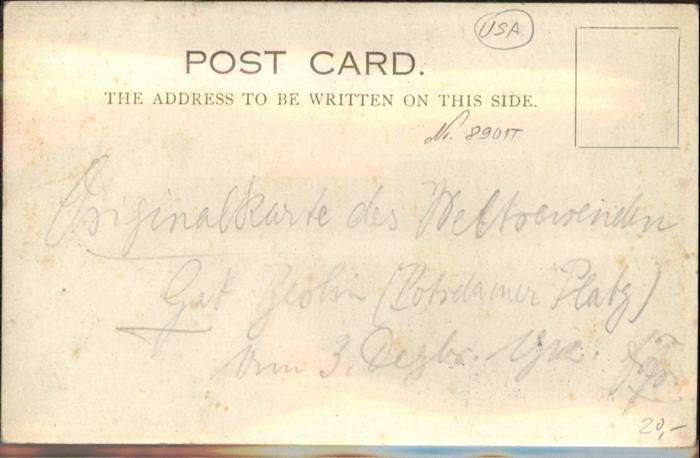 USA
POST CARD.
THE ADDRESS TO BE WRITTEN ON THIS SIDE.
Nr. 8901
Originalkarte des Weltreisenden
Gek. Berlin (Potsdamer Platz)
vom 3. Dezbr.
20,-